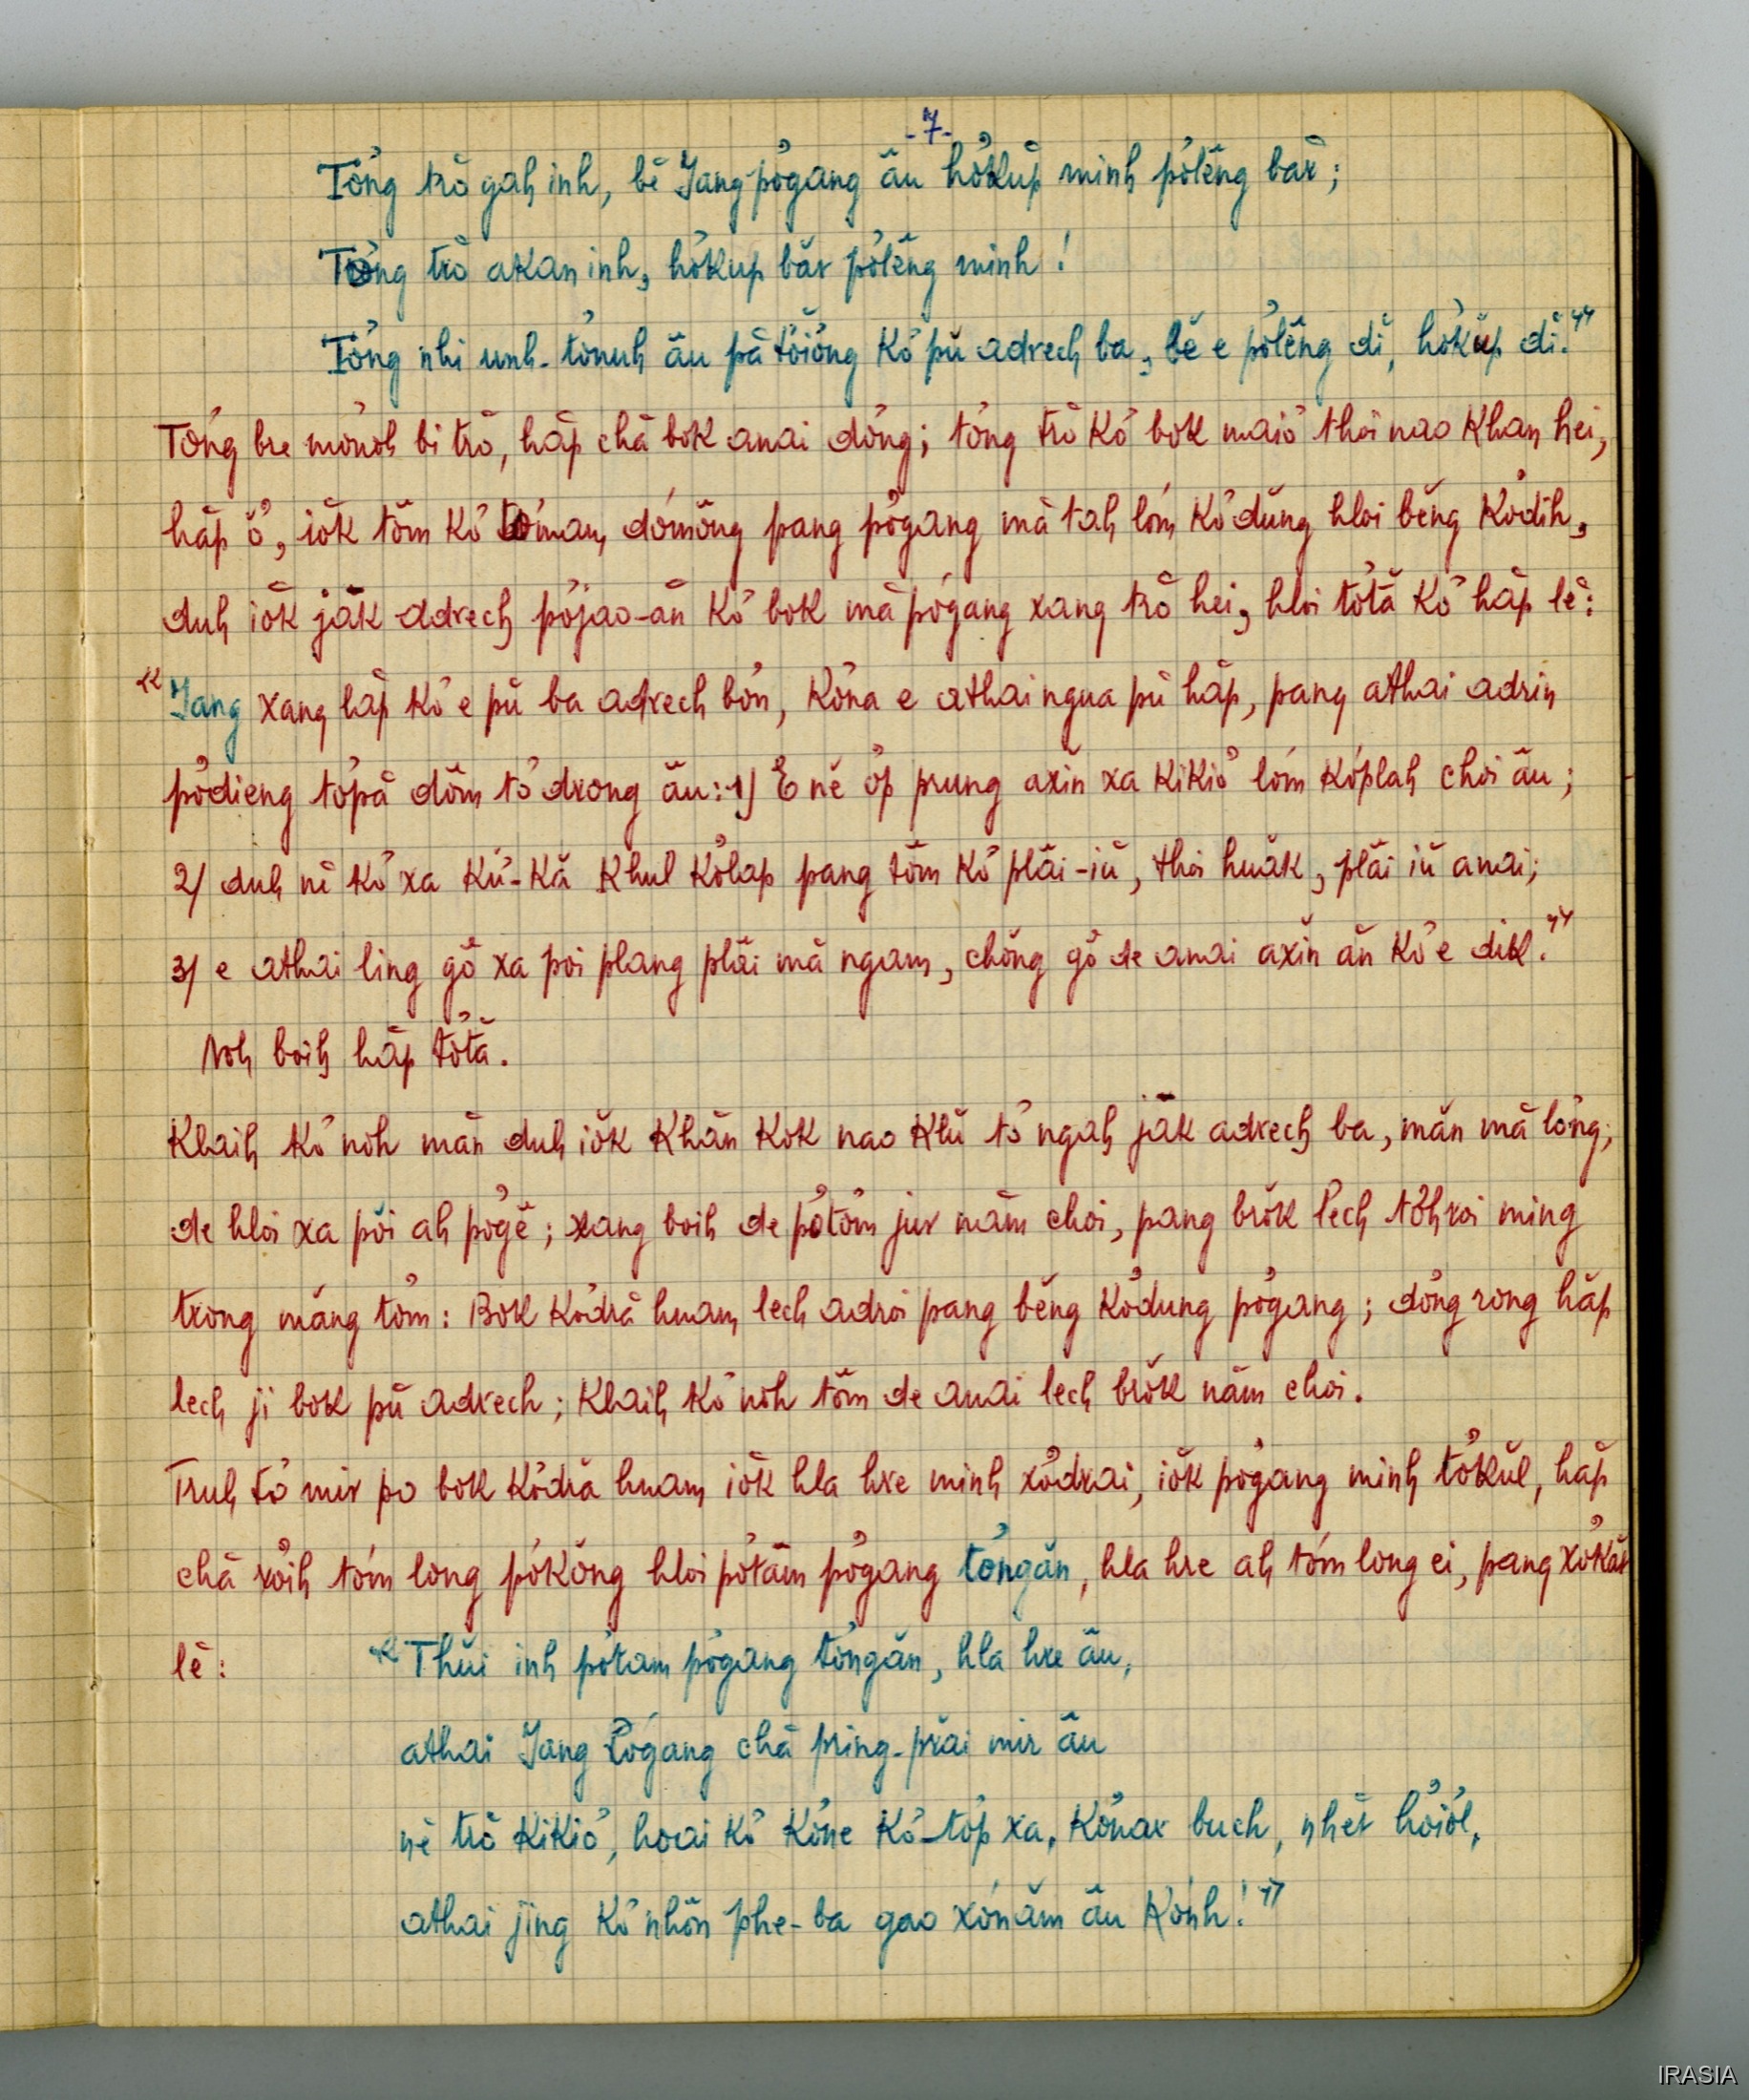 -7-
Tơ̆ng trŏ gah inh, bĕ Jang pơgang ău hơkŭp minh pơlĕng bar;
Tơ̆ng trŏ akan inh, hơkup băr pơlĕng minh!
Tơ̆ng nhi unh-tơnuh ău pă tơiŏng kơ pŭ adrech ba, bĕ e pơlĕng dĭ, hơkŭp dĭ."
Tơ̆ng bre mơnoh bi trŏ, hăp chă bok anai dơ̆ng; tơ̆ng trŏ kơ bok maiơ thoi nao khan hei,
hăp ơ̆, iŏk tŏm kơ tơmam dơmŏng pang pơgang mă tah lơ̆m kơdŭng hloi bĕng kơdih,
duh iŏk jăk adrech pơjao-ăn kơ bok mă pơgang xang trŏ hei, hloi tơtă kơ hăp lĕ:
"Jang xang lăp kơ e pŭ ba adrech bơ̆n, kơna e athai ngua pŭ hăp, pang athai adrin
pơdieng tơpă dŏm tơdrong ău: 1) E nĕ ŏp prung axĭn xa kikiơ lơ̆m kơplah choi ău;
2) duh nĕ kơ xa kŭ-kă khul kơlap pang tŏm kơ plăi-iŭ, thoi huăk, plăi iŭ anai;
3) e athai ling gơ̆ xa poi plang plăi mă ngam, chŏng gơ̆ de anai axĭn ăn kơ e dik."
Noh boih hăp tơtă.
Klaih kơ noh măn duh iŏk khăn kok nao klŭ tơ ngah jăk adrech ba, măn mă lơ̆ng;
de hloi xa pơi ah pơgĕ; xang boih de pơtŏm jur năm choi, pang brŏk lech tơhroi ming
trong măng tŏm: Bok kơdră huam lech adroi pang bĕng kơdung pơgang; dơ̆ng rong hăp
lech ji bok pŭ adrech; klaih kơ noh tŏm de anai lech brŏk năm choi.
Truh tơ mir po bok kơdră huam iŏk hla hre minh xơdrai, iŏk pơgang minh tơkŭl, hăp
chă xoih tơ̆m long pơkŏng hloi pơtăm pơgang tơngăn, hla hre ah tơ̆m long ei, pang xơkăr
lĕ: "Thŭi inh pơtam pơgang tơngăn, hla hre ău,
athai Jang Pơgang chă pring-prăi mir ău
nĕ trŏ kikiơ, hoai kơ kơne kơ-tŏp xa, kơnar buch, nhĕt hơiŏl,
athai jing kơ nhŏn phe-ba gao xơnăm ău kơnh!"